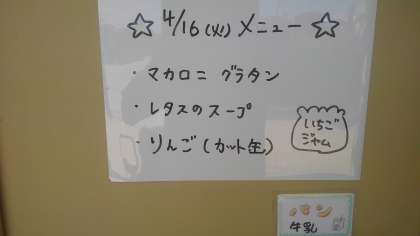 ☆ 4/16(火)メニュー ☆
・マカロニ グラタン
・レタスのスープ
・りんご(カット缶)
いちご
ジャム
パン
牛乳